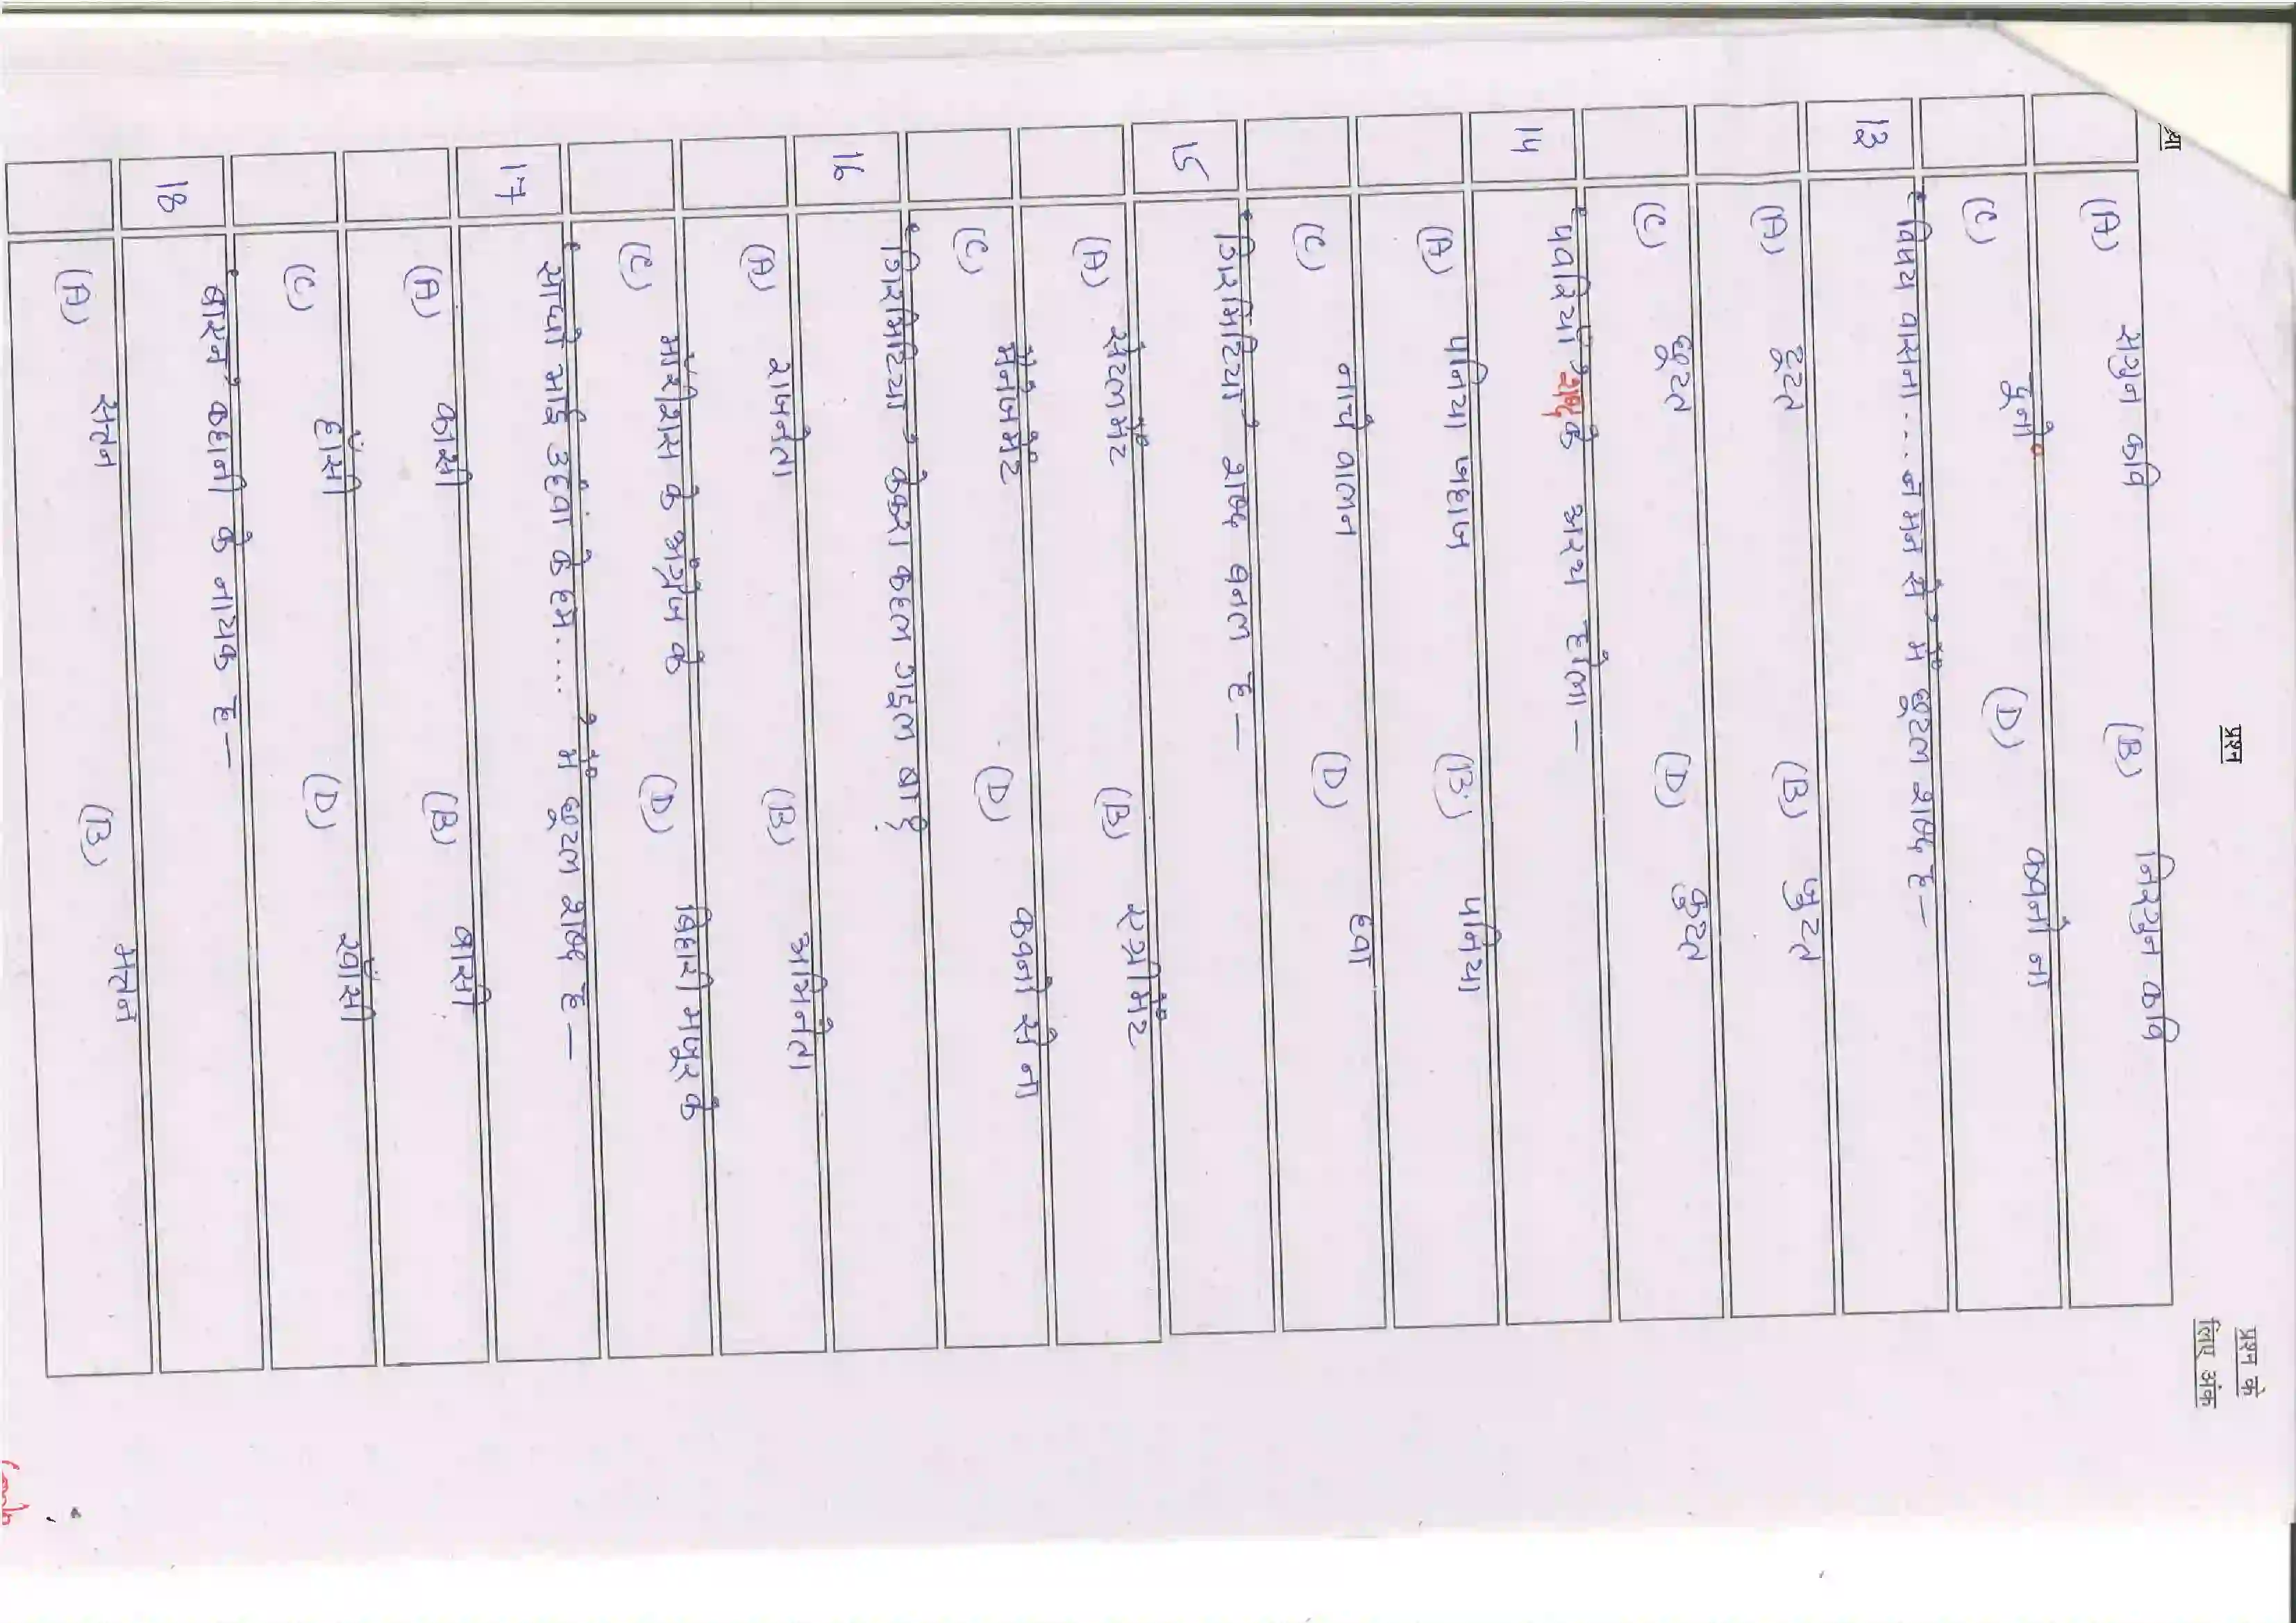 प्रश्न
प्रश्न के
लिए अंक
(A) सगुन कवि (B) निरगुन कवि
(C) दूनो (D) कवनो ना
13 'विषय वासना... न मन से' में छूटल शब्द ह—
(A) टूटल (B) जुटल
(C) छूटल (D) कुटल
14 'पवरिया' शब्द के अरथ होला—
(A) पनिया जहाज (B) पनिया
(C) नाचे वालन (D) हवा
15 'गिरमिटिया' शब्द बनल ह—
(A) सेटलमेंट (B) एग्रीमेंट
(C) मैनेजमेंट (D) कवनो से ना
16 'गिरमिटिया' केकरा कहल गइल बा?
(A) राजनेता (B) अभिनेता
(C) मॉरीशस के अंग्रेज के (D) बिहारी मजूर के
17 'साधो भाई उहंवा के हम....' में छूटल शब्द ह—
(A) कासी (B) बासी
(C) हाँसी (D) खाँसी
18 'बारन' कहानी के नायक ह—
(A) सतन (B) मगन